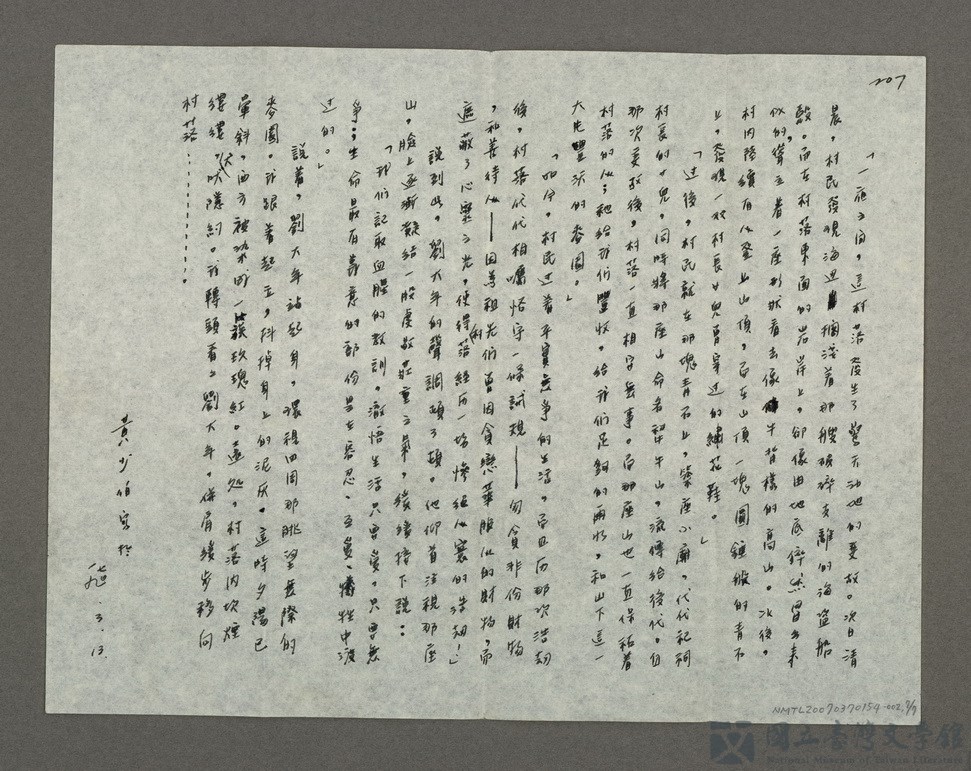 207
「一夜之間，這村落發生了驚天動地的變故。次日清
晨，村民發現海邊擱淺着那艘破碎支離的海盜船
骸。而在村落東面的岩岸上，卻像由地底倅然冒出來
似的，聳立着一座形狀看去像牛背樣的高山。以後，
村內陸續有人登上山頂，而在山頂一塊圓鐘般的青石
上，發現一双村長女兒曾穿过的繡花鞋。
「过後，村民就在那塊青石上，築座小廟，代代祀祠
村長的女兒，同時將那座山命名犂牛山，流傳給後代。自
那次变故後，村落一直相安無事。而那座山也一直保祐着
村落的人；牠給我們豐收，給我們足夠的雨水，和山下這一
大片豐沃的麥園。」
「如今，村民过着平實無爭的生活，而且历那次浩劫
後，村落代代相囑恪守一條誡規——勿貪非份財物
，和善待人——因為祖先們曾因貪戀華服似的財物，而
遮蔽了心靈之光，使得村落經历一場慘絕人寰的浩劫！」
說到此，劉大年的聲調頓了頓。他仰首注視那座
山，臉上逐漸凝結一股虔敬莊重之氣，緩緩接下說：
「我們記取血腥的教訓，澈悟生活只要愛，只要無
爭；生命最有意義的部份是在容忍、互愛、犧牲中渡
过的。」
說着，劉大年站起身，環視四周那眺望無際的
麥園。我跟着起立，抖掉身上的泥灰。這時夕陽已
暈斜，西方被染成一簇玫瑰紅。遠処，村落內炊煙
縷縷，伏吠隱約。我轉頭看了劉大年，併肩緩步移向
村落⋯⋯⋯⋯。
黃少伯 完於
三、13、
NMTL20070370154-002,7/7
國立臺灣文學館
National Museum of Taiwan Literature